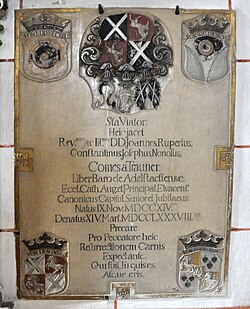 Sta Viator.
Heic jacet
Rev.mus ac Ill.mus DD. Joannes Rupertus,
Constantinus Josephus Nonosus,
Comes a Trauner.
Liber Baro de Adelstaettense.
Eccl. Cath. August. Principal. Elvacens.
Canonicus Capitul. Senior et Jubilaeus.
Natus IX. Nov. MDCCXIV.
Denatus XIV. Mart. MDCCLXXXVIII.
Precare
Pro Peccatore heic
Resurrectionem Carnis
Expectante.
Qui fui, tu qui es.
Atque eris.